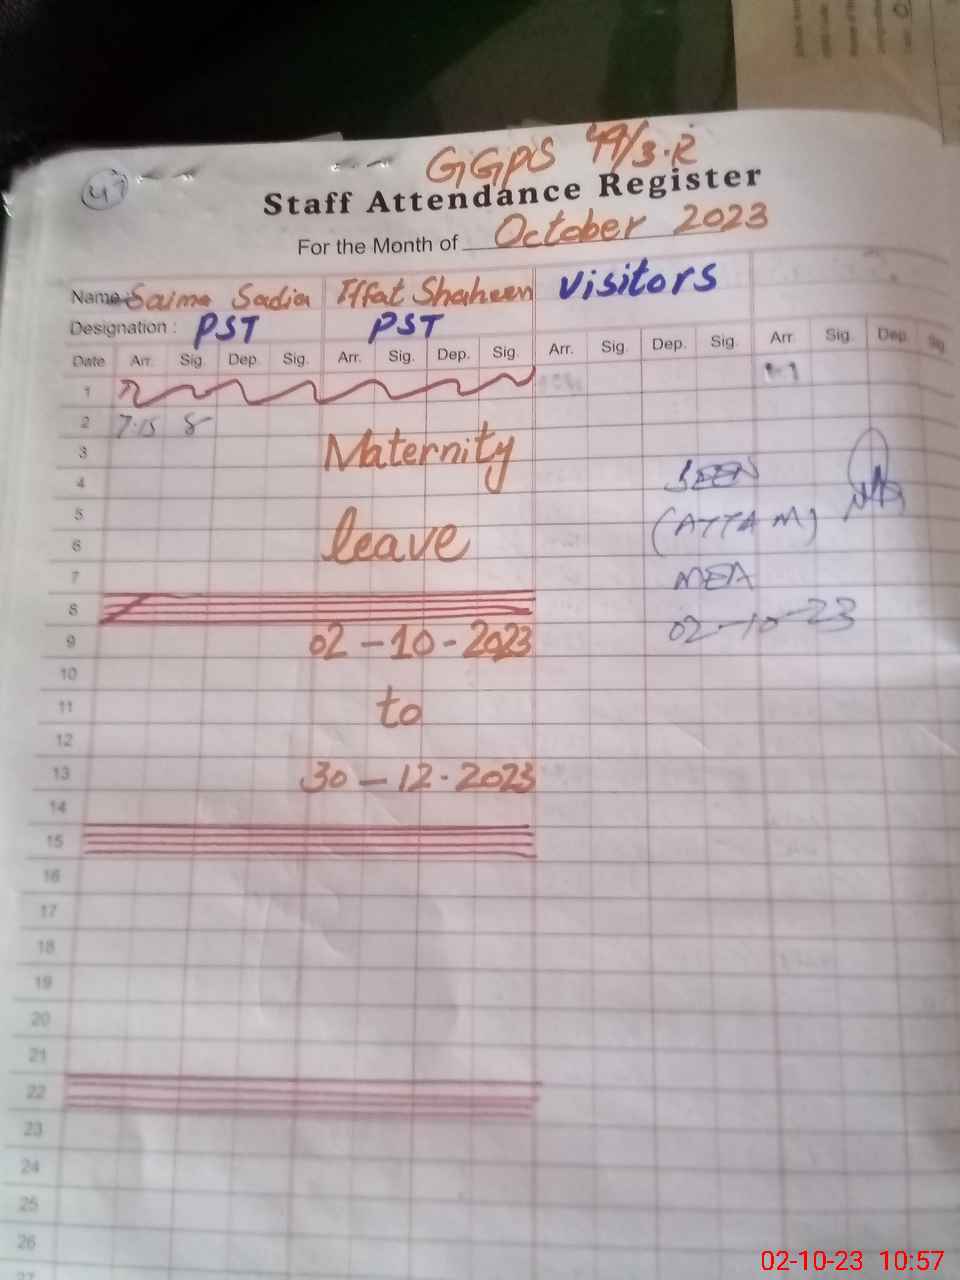 47
GGPS 49/3.R
Staff Attendance Register
For the Month of October 2023
Name: Saima Sadia Iffat Shaheen Visitors
Designation : PST PST
Date Arr. Sig. Dep. Sig. Arr. Sig. Dep. Sig. Arr. Sig. Dep. Sig. Arr. Sig. Dep. Sig.
1
2 7.15 S
3 Maternity
4 SEEN
5 (ATTA M)
6 leave
7 MEA
8
9 02-10-2023 02-10-23
10
11 to
12
13 30-12-2023
14
15
16
17
18
19
20
21
22
23
24
25
26
27
02-10-23 10:57